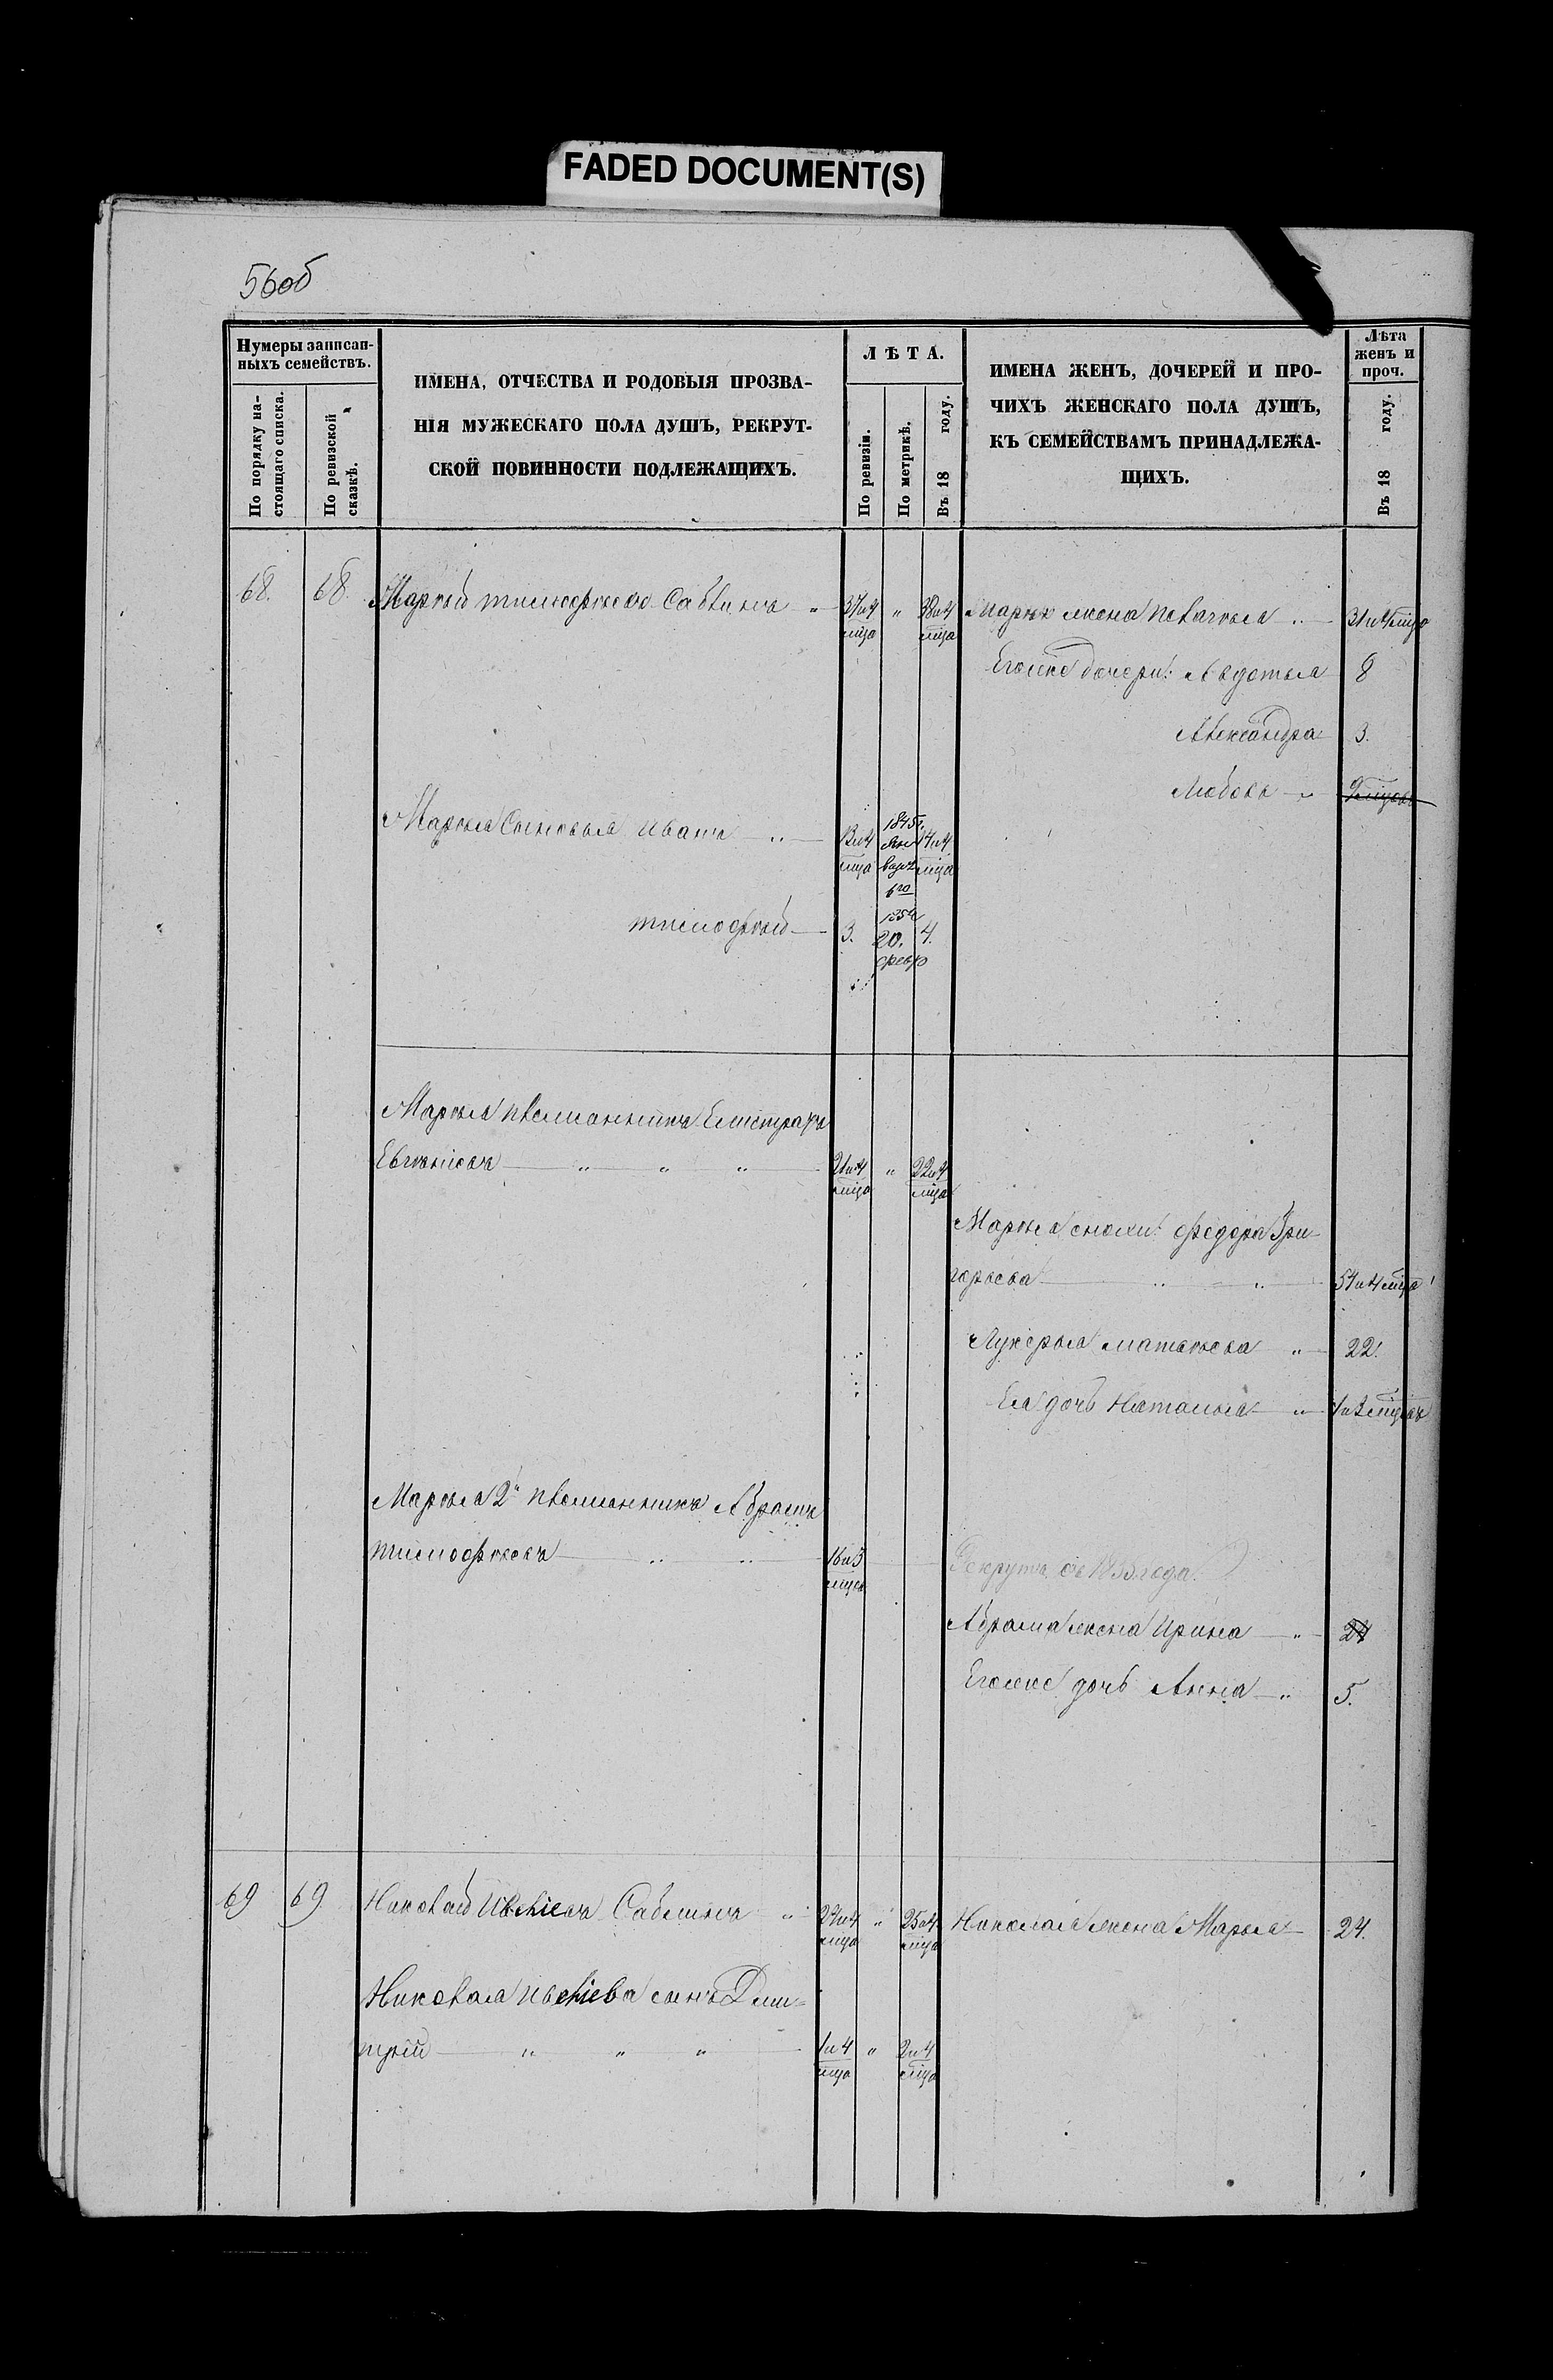 FADED DOCUMENT(S)
56об
Нумеры записан-
ныхъ семействъ.
По порядку на-
стоящаго списка.
По ревизской
сказкѣ.
ИМЕНА, ОТЧЕСТВА И РОДОВЫЯ ПРОЗВА-
НІЯ МУЖЕСКАГО ПОЛА ДУШЪ, РЕКРУТ-
СКОЙ ПОВИННОСТИ ПОДЛЕЖАЩИХЪ.
ЛѢТА.
По ревизіи.
По метрикѣ.
Въ 18 году.
ИМЕНА ЖЕНЪ, ДОЧЕРЕЙ И ПРО-
ЧИХЪ ЖЕНСКАГО ПОЛА ДУШЪ,
КЪ СЕМЕЙСТВАМЪ ПРИНАДЛЕЖА-
ЩИХЪ.
Лѣта
женъ и
проч.
Въ 18 году.
68. 68. Маркъ Тимофѣевъ 37и4 " 38и4 Марка жена Пелагѣя " 31и4мца
мца мца
Егоже дочери: Авдотья 8
Александра 3.
Любовь "
Марка сыновья Иванъ " 13и4 1845г. 14и4
мца Января мца
6го
Тимофѣй 3. 20. 4.
Февр
Марка племянникъ Елистратъ
" " " 21и4 " 22и4
мца мца
Марка снохи: Федора Гри-
горьева " " 54и4мца
Лукерья Матвѣева " 22.
Ея дочь Наталья "
Марка 2й племянникъ Абрамъ
Тимофѣевъ " " 16и3
мца
Рекрутъ съ года.
Абрама жена Ирина " 24
Егоже дочь Анна " 5.
69 69. Николай Саблинъ " 24и4 " 25и4 Николая жена Марья 24.
мца мца
Николая сынъ Дми-
трій " " " 1и4 " 2и4
мца мца